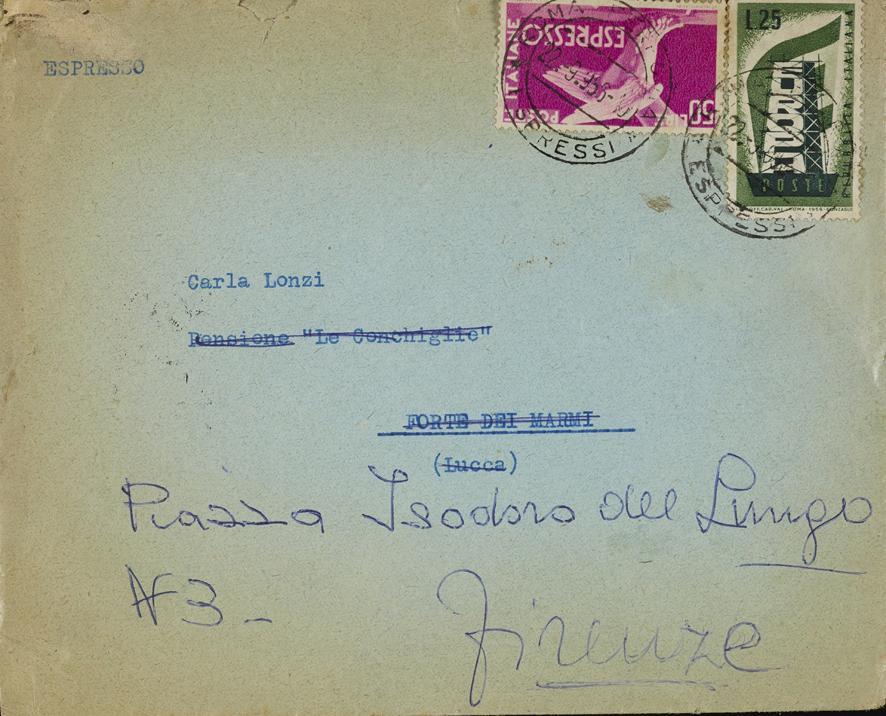 ESPRESSO
POSTE ITALIANE
ESPRESSO
50
ROMA
22.9.956
ESPRESSI
L.25
EUROPA
POSTE
REPUBBLICA ITALIANA
ESPRESSI
Carla Lonzi
Pensione "Le Conchiglie"
FORTE DEI MARMI
(Lucca)
Piazza Isodoro del Lungo
N 3 -
Firenze